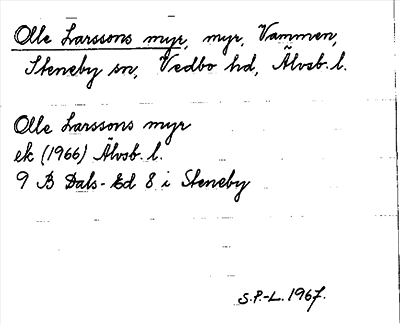 Olle Larssons myr, myr, Vammen,
Steneby sn, Vedbo hd, Älvsb. l.
Olle Larssons myr
ek (1966) Älvsb. l.
9 B Dals-Ed 8 i Steneby
S.P.-L. 1967.